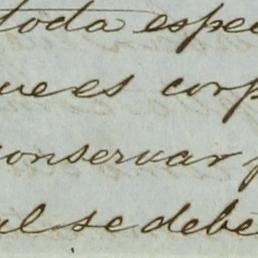 toda espec
ue es corp
conservar p
al se debe